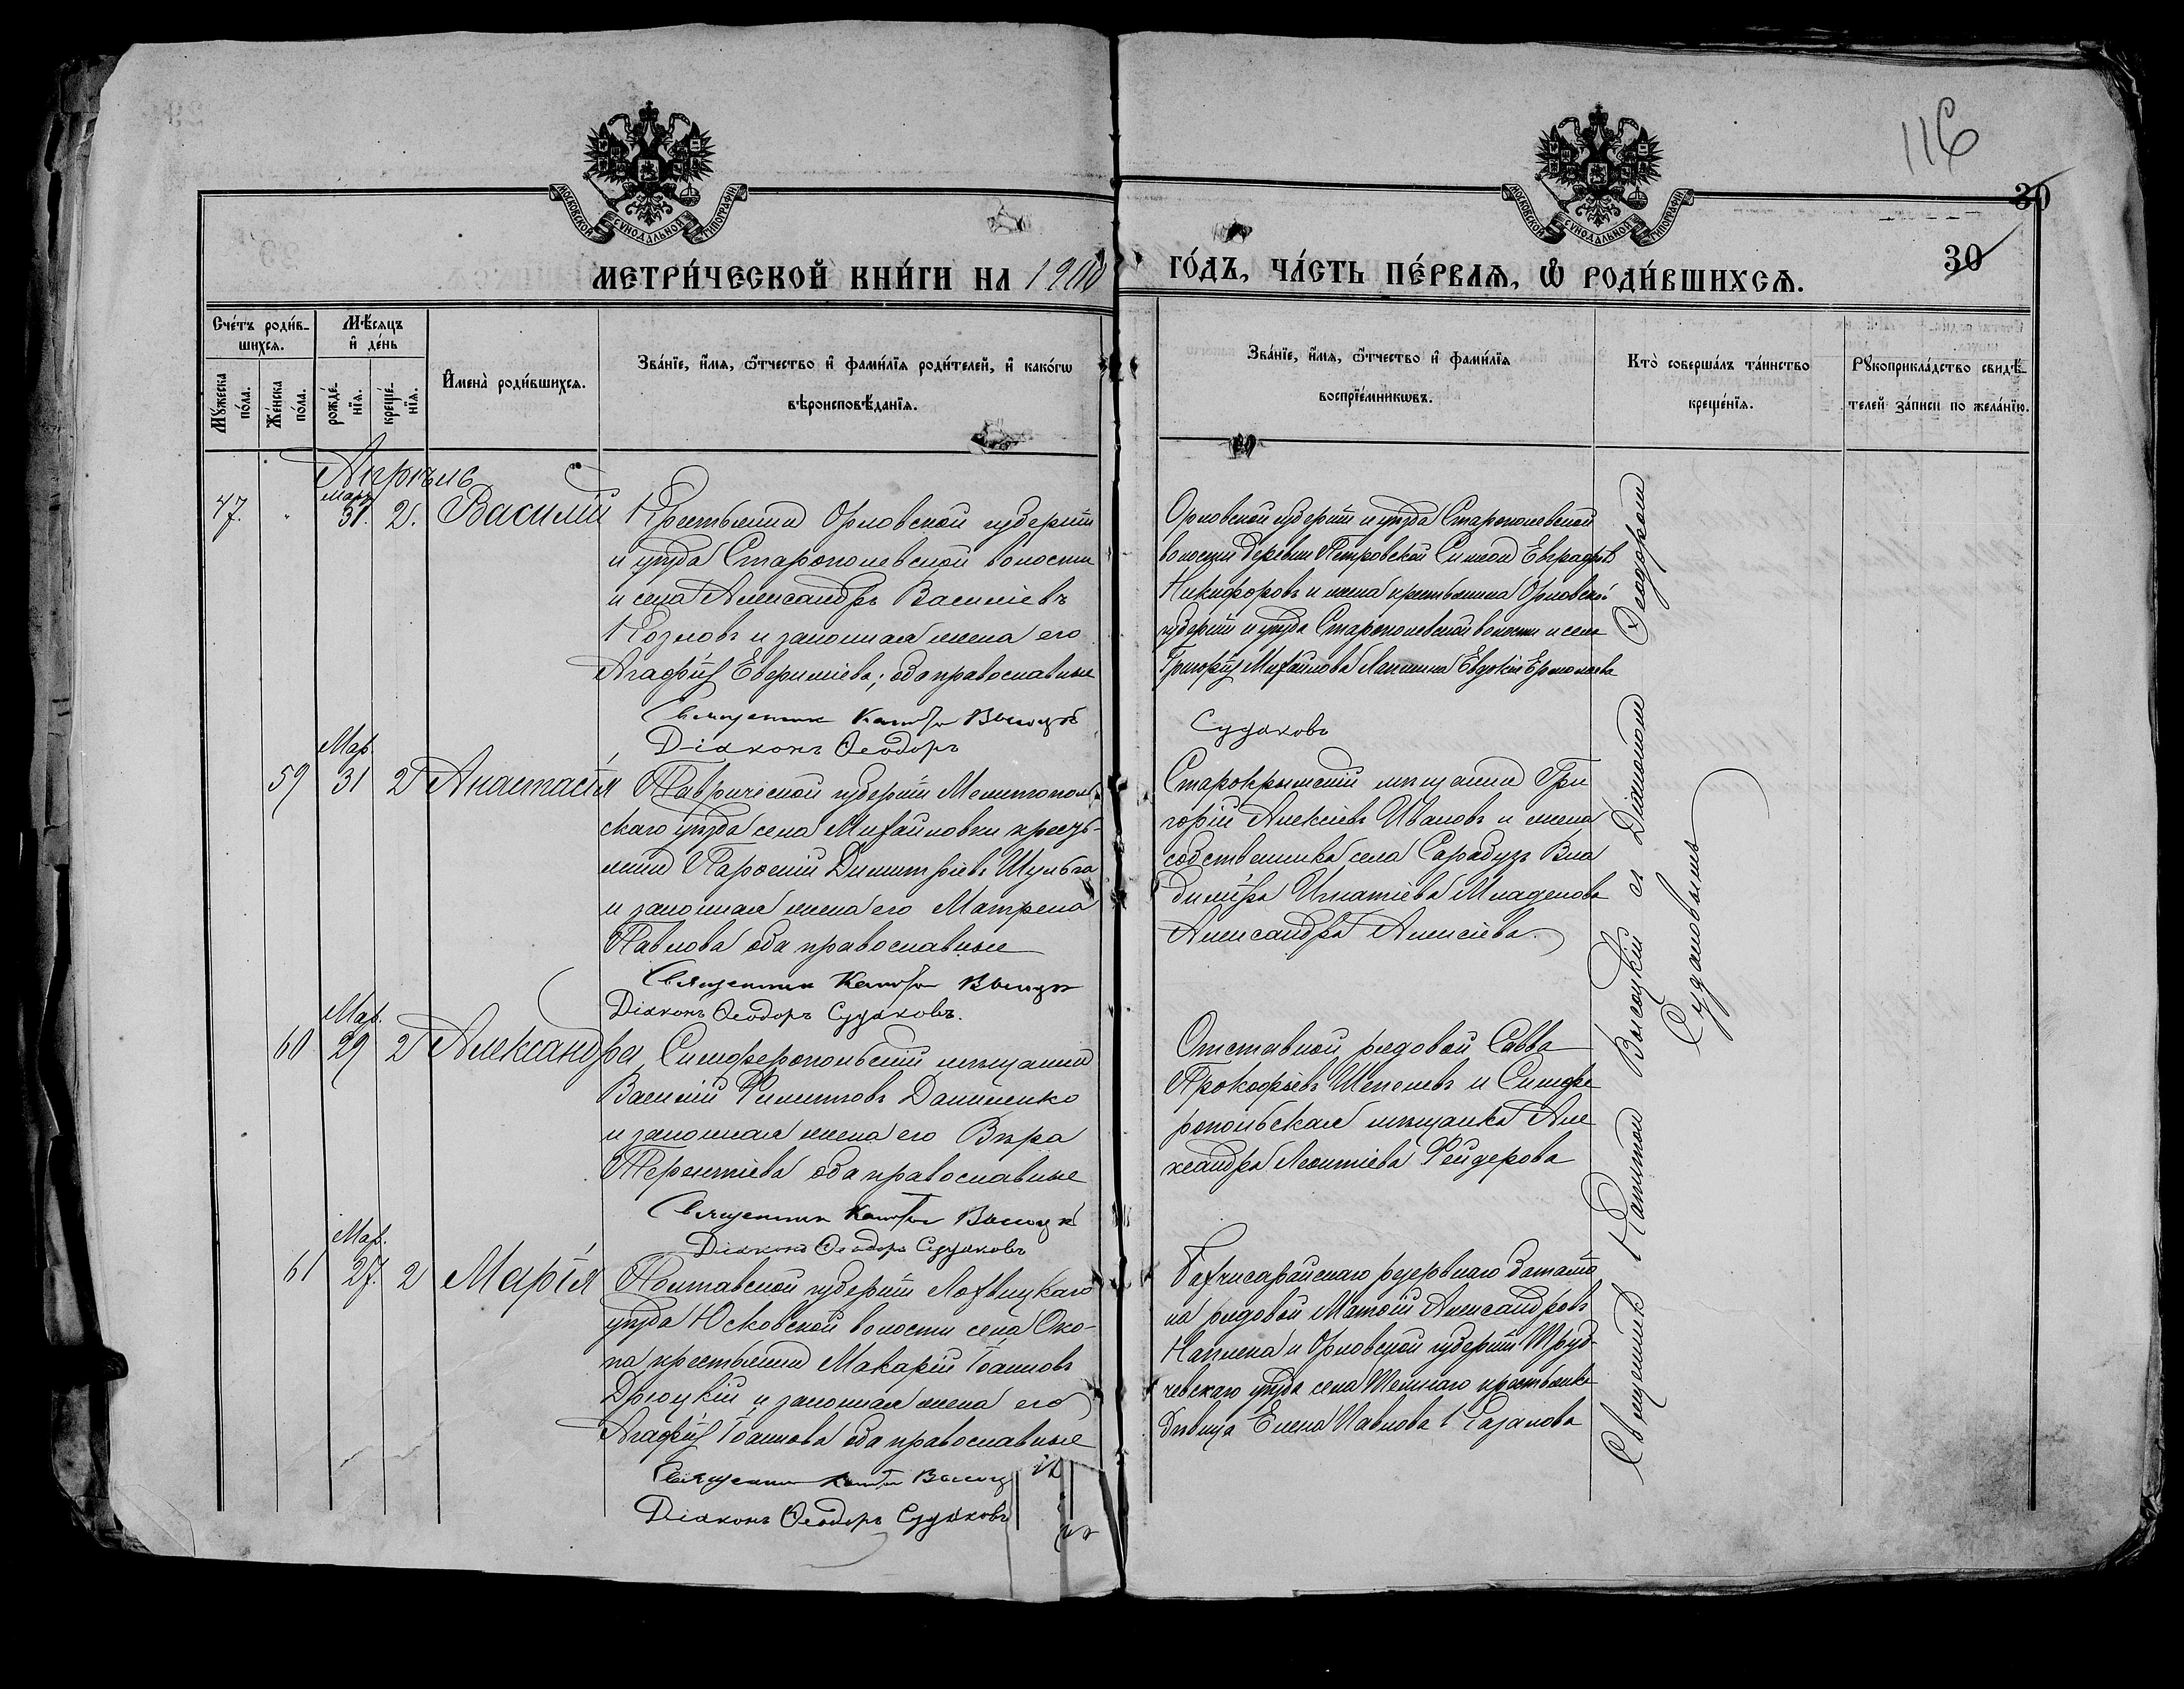 116
30
30
МОСКОВСКОЙ СУНОДАЛЬНОЙ ТИПОГРАФІИ
МОСКОВСКОЙ СУНОДАЛЬНОЙ ТИПОГРАФІИ
МЕТРИ́ЧЕСКОЙ КНИ́ГИ НА 1900 ГО́ДЪ, ЧА́СТЬ ПЕ́РВАѦ, Ѡ РОДИ́ВШИХСѦ.
Сче́тъ роди́в-
шихсѧ.
Мꙋжеска по́ла.
Же́нска по́ла.
Мѣ́сяцъ
и҆ де́нь
рожде́-
нїѧ.
креще́-
нїѧ.
И҆мена̀ роди́вшихсѧ.
Зва́нїе, и҆́мѧ, ѻ҆́тчество и҆ фами́лїѧ роди́телей, и҆ како́гѡ
вѣроисповѣ́данїѧ.
Зва́нїе, и҆́мѧ, ѻ҆́тчество и҆ фами́лїѧ
воспрїе́мникѡвъ.
Кто̀ соверша́лъ та́инство
креще́нїѧ.
Рꙋкоприкла́дство свидѣ́-
телей за́писи по жела́нїю.
Апрѣль
47. Мар. 31. 2. Василій
Крестьянинъ Орловской губерніи
и уѣзда Старопольевской волости
и села Александръ Василіевъ
Козловъ и законная жена его
Агафія Евфиміева; оба православные
Священникъ Капитонъ Высоцкій
Діаконъ Ѳеодоръ Судаковъ
Орловской губерніи и уѣзда Старопольевской
волости деревни Петровской Симеонъ Евграфовъ
Никифоровъ и жена крестьянина Орловской
губерніи и уѣзда Старопольевской волости и села
Григорія Михайлова Лапшина Евдокія Ермолаева
59 Мар. 31 2 Анастасія
Таврической губерніи Мелитополь-
скаго уѣзда села Михайловки кресть-
янинъ Парѳеній Димитріевъ Шульга
и законная жена его Матрена
Павлова оба православные
Священникъ Капитонъ Высоцкій
Діаконъ Ѳеодоръ Судаковъ.
Старокрымскій мѣщанинъ Гри
горій Алексіевъ Ивановъ и жена
собственника села Сарабузъ Вла
диміра Игнатіева Младенова
Александра Алексіева.
60 Мар. 29 2 Александра
Симферопольскій мѣщанинъ
Василій Филипповъ Даниленко
и законная жена его Вѣра
Терентіева оба православные
Священникъ Капитонъ Высоцкій
Діаконъ Ѳеодоръ Судаковъ
Отставной рядовой Савва
Прокофіевъ Шепелевъ и Симфе
ропольская мѣщанка Але
ксандра Леонтіева Фейдерова
61 Мар. 27. 2 Марія
Полтавской губерніи Лохвицкаго
уѣзда Юсковской волости села Око-
па крестьянинъ Макарій Іоанновъ
Друцкій и законная жена его
Агафія Іоаннова оба православные
Священникъ Капитонъ Высоцкій
Діаконъ Ѳеодоръ Судаковъ
Бахчисарайскаго резервнаго баталіо
на рядовой Матѳій Александровъ
и Орловской губерніи Труб-
чевскаго уѣзда села крестьянка
дѣвица Елена Павлова Казакова
Священникъ Капитонъ Высоцкій съ Діакономъ Ѳеодоромъ
Судаковымъ